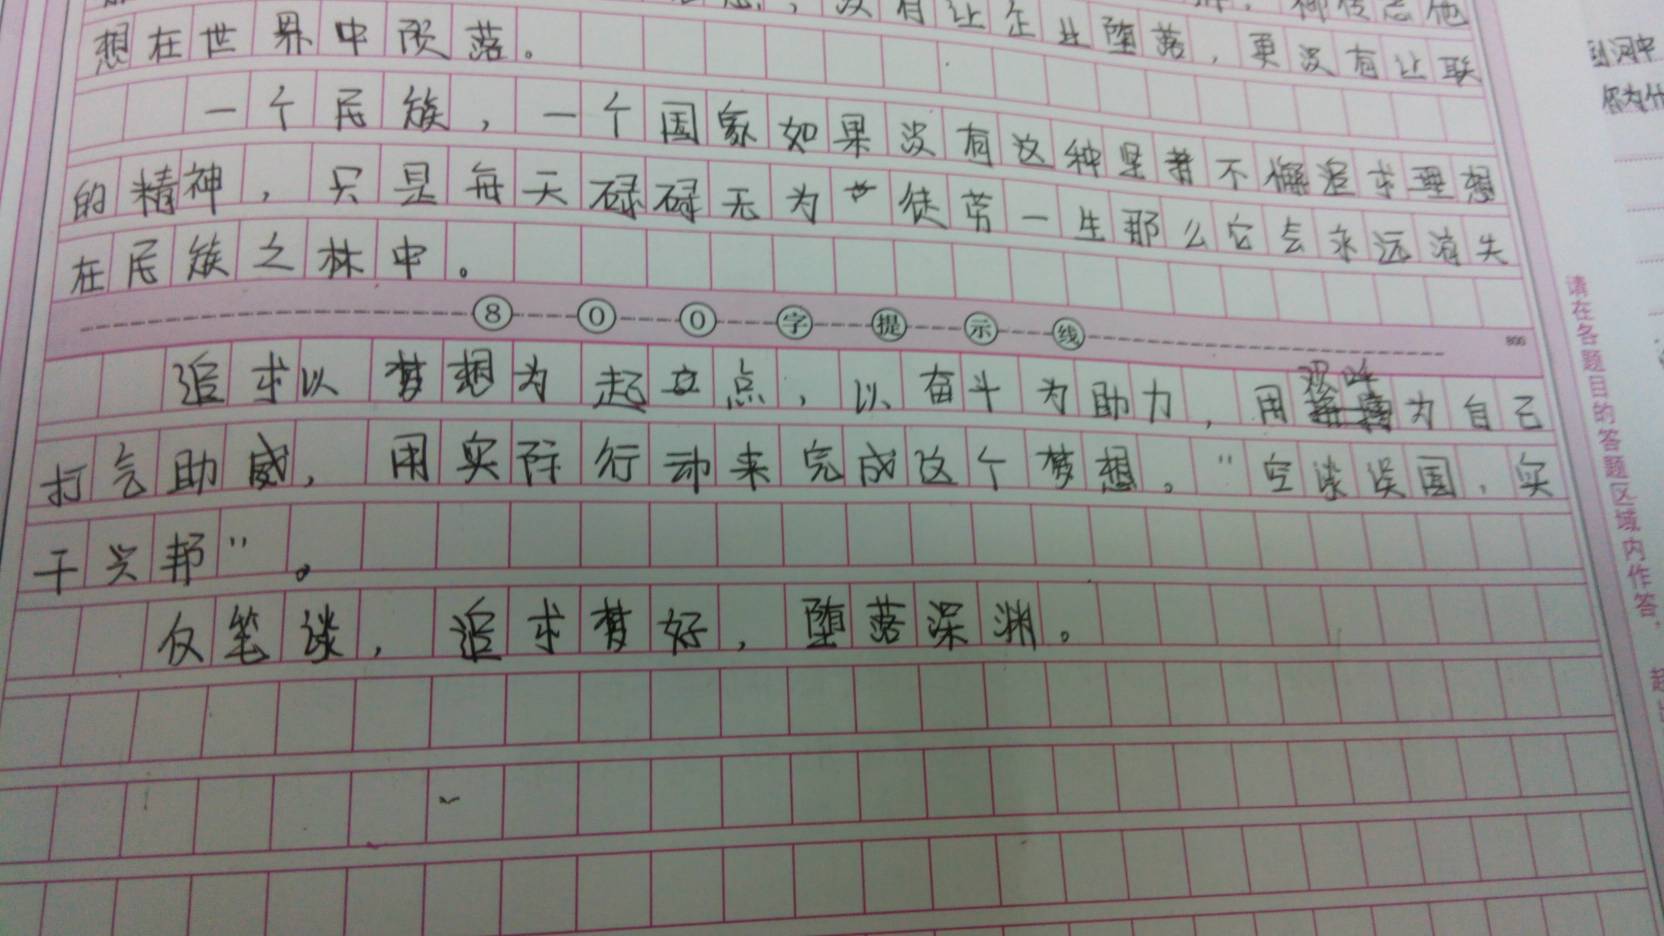 没有让企业堕落，更没有让联
想在世界中陨落。
一个民族，一个国家如果没有这种坚着不懈追求理想
的精神，只是每天碌碌无为徒劳一生那么它会永远消失
在民族之林中。
800字提示线
800
追求以梦想为起点，以奋斗为助力，用欢呼为自己
打气助威，用实际行动来完成这个梦想。"空谈误国，实
干兴邦"。
仅笔谈，追求梦好，堕落深渊。
到河中
你为什
请在各题目的答题区域内作答，
超出